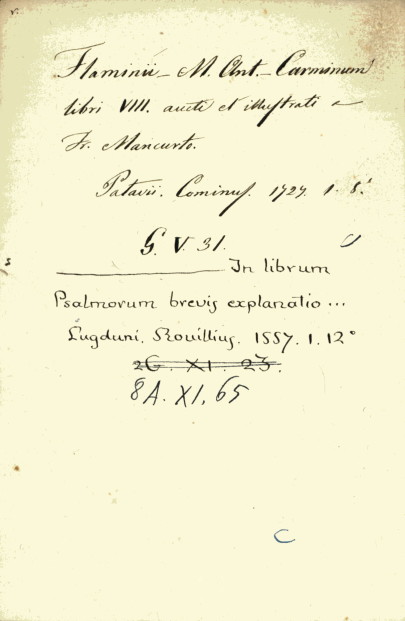 Flaminii – M. Ant. – Carminum
libri VIII. aucti et illustrati a
Fr. Mancurto.
Patavii. Cominus. 1727. 1. 8.°
G. V. 31.
In librum
Psalmorum brevis explanatio ...
Lugduni. Rovillius. 1557. 1. 12°
2G. XI. 23.
8A. XI. 65
C